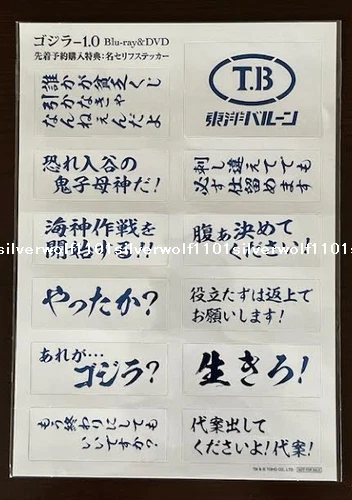 ゴジラ-1.0 Blu-ray&DVD
先着予約購入特典:名セリフステッカー
誰かが貧乏くじ
引かなきゃ
なんねぇんだよ
T.B
東洋バルーン
恐れ入谷の
鬼子母神だ!
刺し違えてでも
必ず仕留めます
海神作戦を
腹ぁ決めて
silverwolf1101silverwolf1101silverwolf1101
やったか?
役立たずは返上で
お願いします!
あれが…
ゴジラ?
生きろ!
もう終わりにしても
いいですか?
代案出して
くださいよ!代案!
TM & © TOHO CO., LTD.
NOT FOR SALE